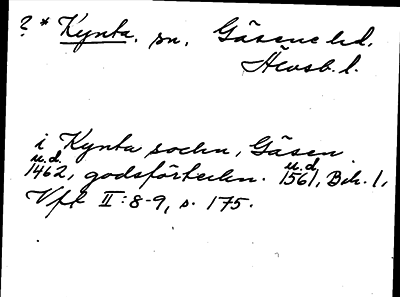 ? * Kynta. sn. Gäsene hd.
Älvsb. l.
i Kynta sochn, Gäsen
u.d. u.d.
1462, godsförteckn. 1561, Bih. 1,
Vfk II: 8-9, s. 175.